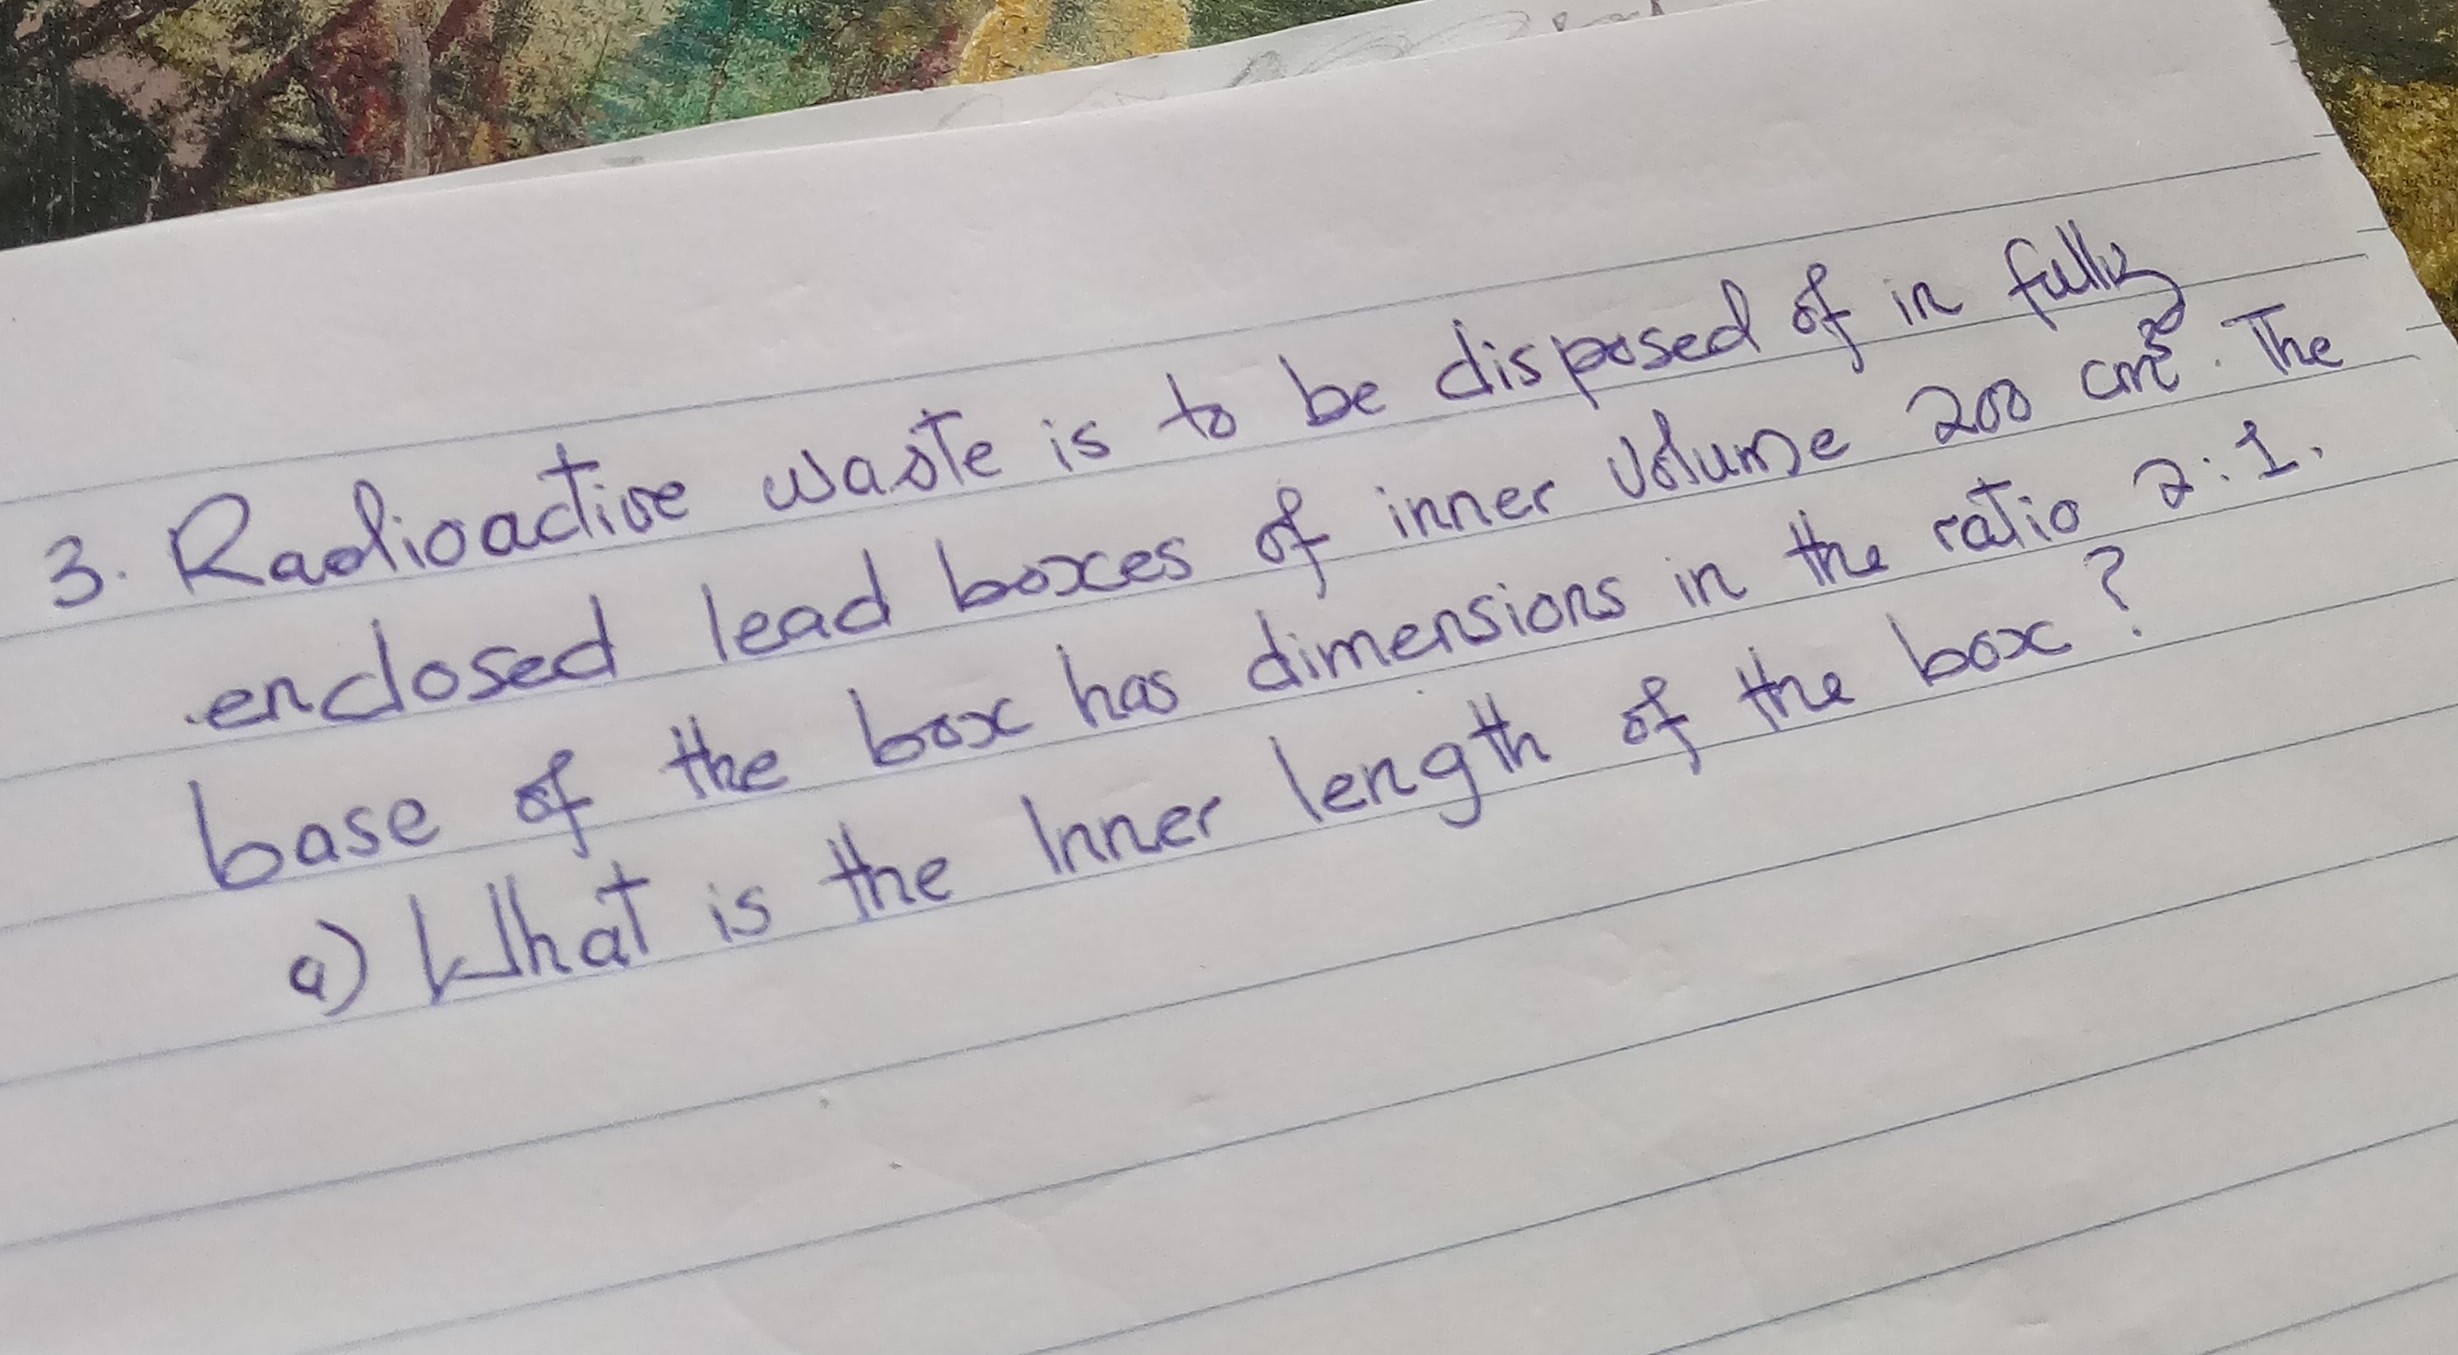 3. Radioactive waste is to be disposed of in fully
enclosed lead boxes of inner volume 200 cm³. The
base of the box has dimensions in the ratio 2:1.
a) What is the Inner length of the box?